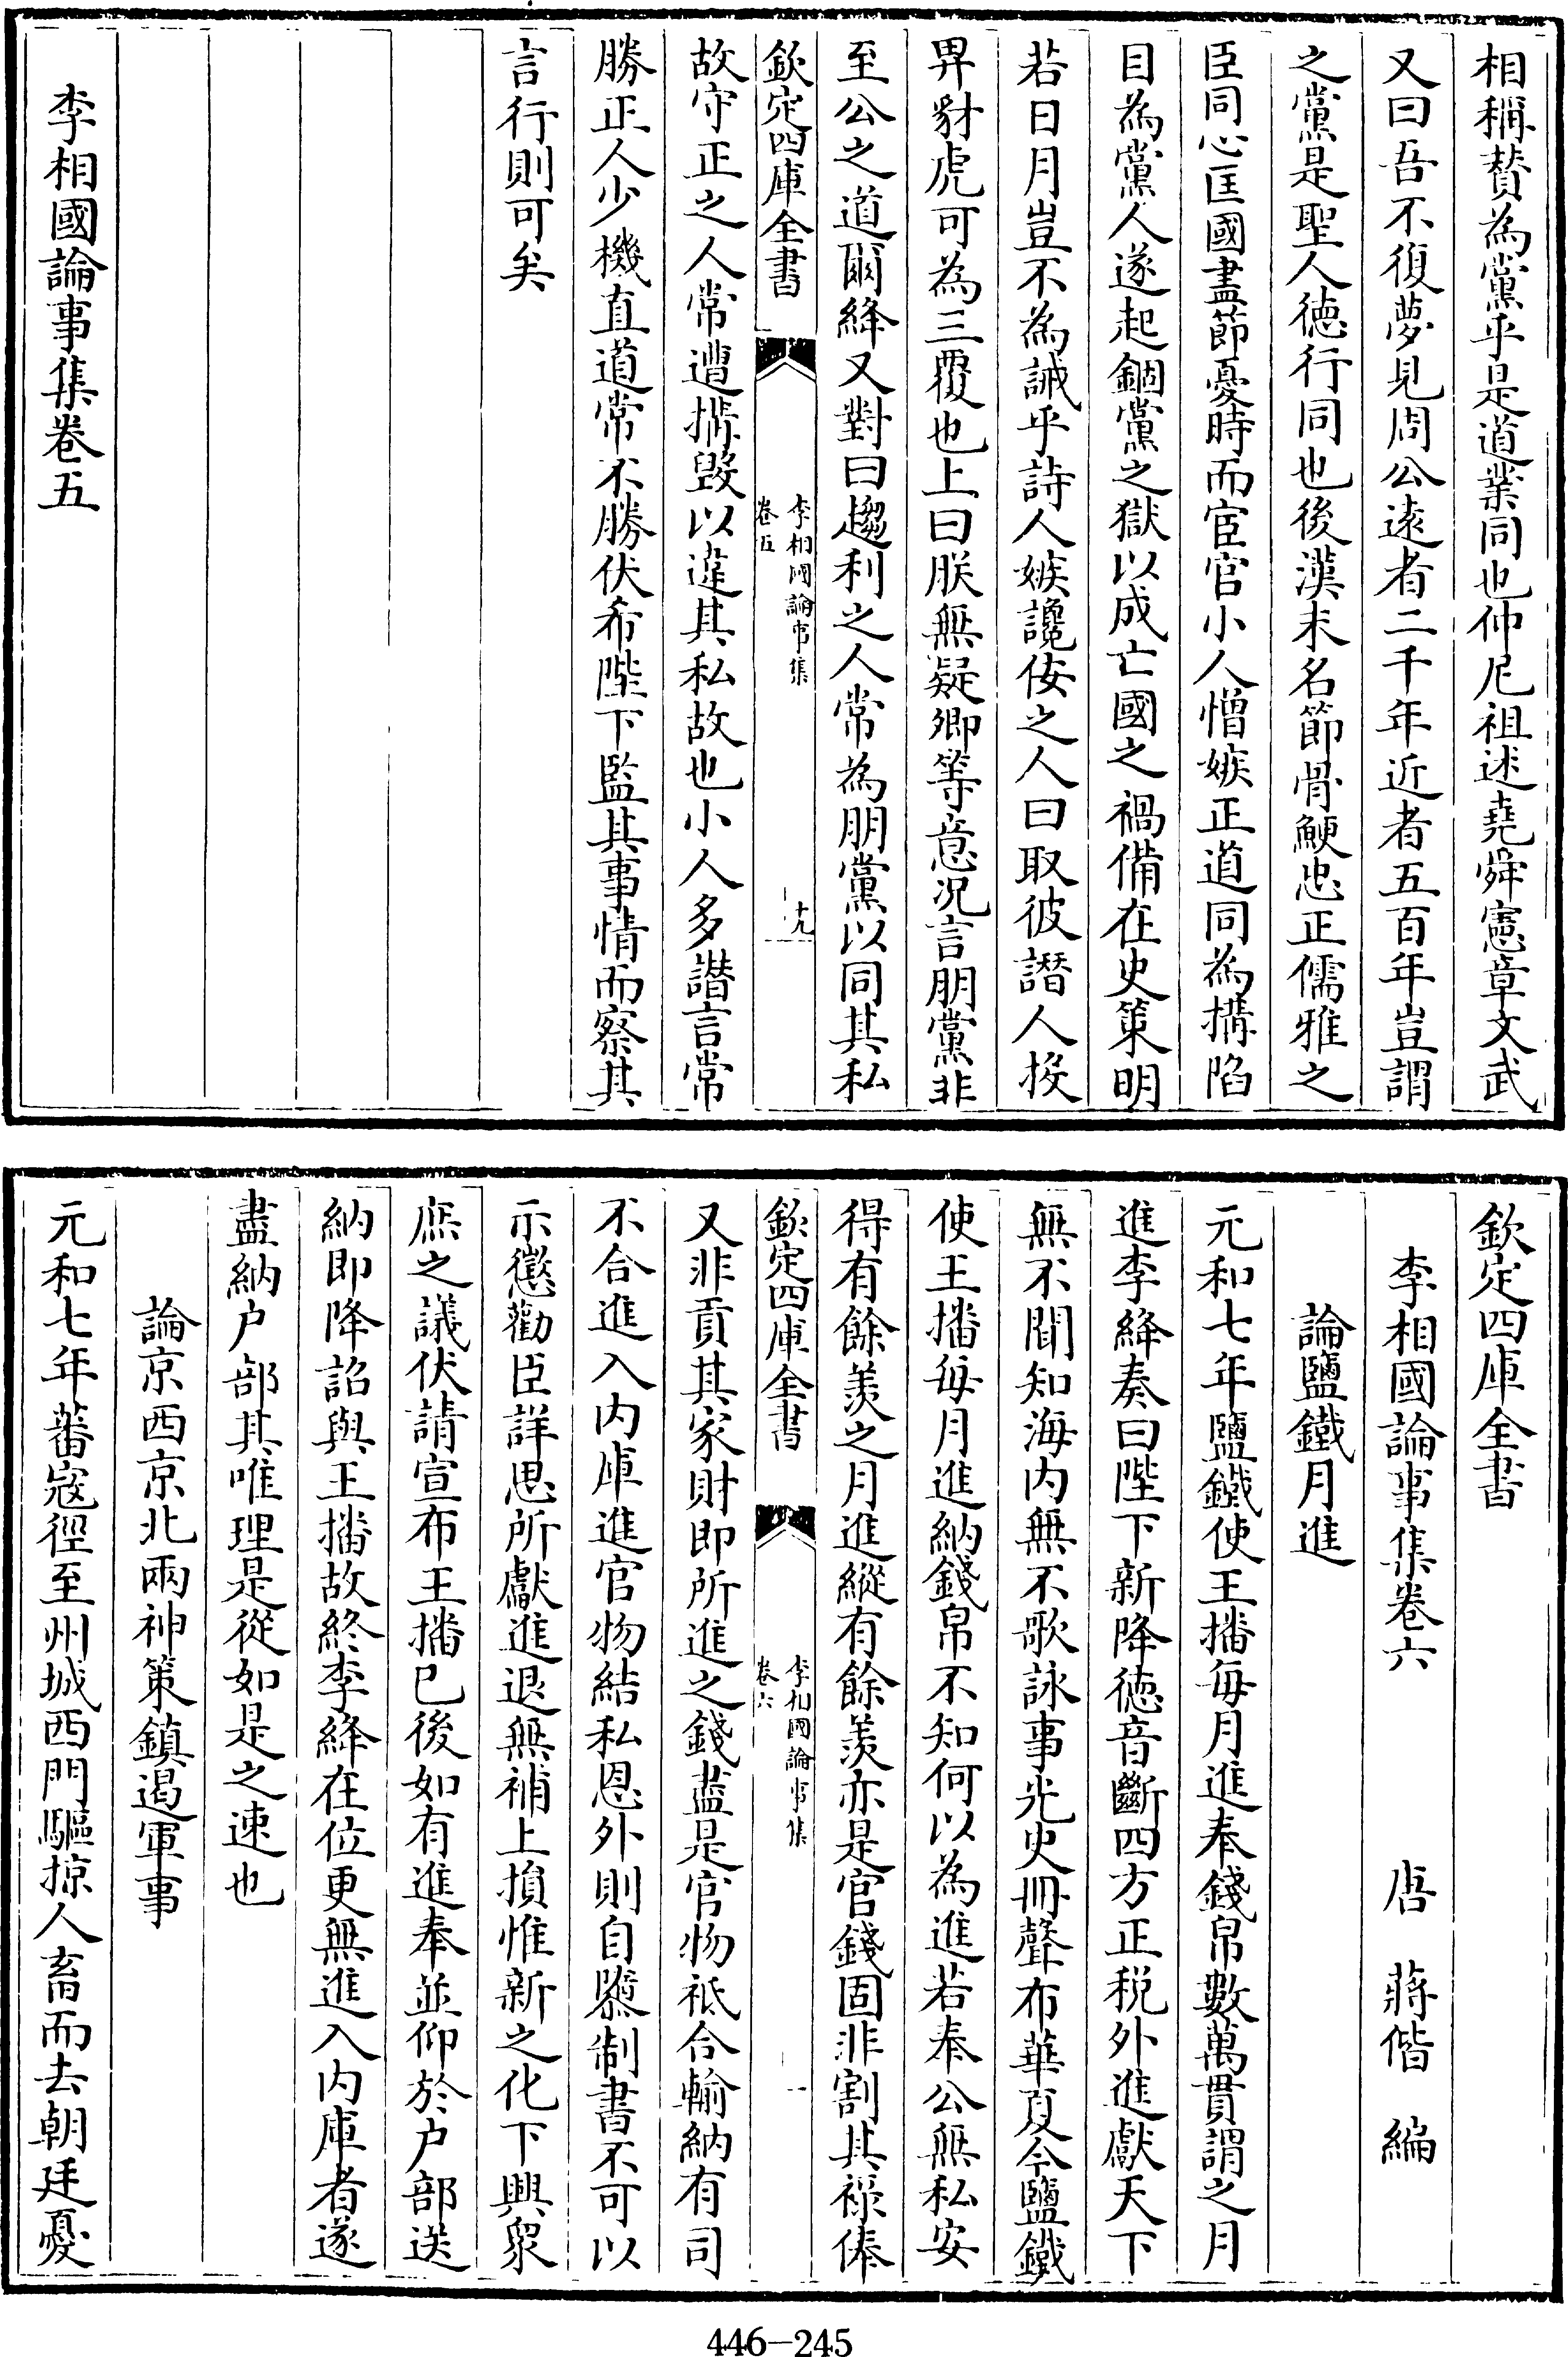 相稱賛為黨乎是道業同也仲尼祖述堯舜憲章文武
又曰吾不復夢見周公遠者二千年近者五百年豈謂
之黨是聖人徳行同也後漢末名節骨鯁忠正儒雅之
臣同心匡國盡節憂時而宦官小人憎嫉正道同為搆陷
目為黨人遂起錮黨之獄以成亡國之禍備在史策明
若日月豈不為誡乎詩人嫉讒佞之人曰取彼譖人投
畀豺虎可為三覆也上曰朕無疑卿等意况言朋黨非
至公之道爾絳又對曰趨利之人常為朋黨以同其私
欽定四庫全書
李相國論事集
卷五
十九
故守正之人常遭搆毁以違其私故也小人多譖言常
勝正人少機直道常不勝伏希陛下監其事情而察其
言行則可矣
李相國論事集卷五
欽定四庫全書
李相國論事集卷六
唐 蔣偕 編
論鹽鐵月進
元和七年鹽鐵使王播每月進奉錢帛數萬貫謂之月
進李絳奏曰陛下新降徳音斷四方正税外進獻天下
無不聞知海内無不歌詠事光史冊聲布華夏今鹽鐵
使王播每月進納錢帛不知何以為進若奉公無私安
得有餘羨之月進縱有餘羨亦是官錢固非割其禄俸
欽定四庫全書
李相國論事集
卷六
一
又非貢其家財即所進之錢盡是官物祗合輸納有司
不合進入内庫進官物結私恩外則自隳制書不可以
示懲勸臣詳思所獻進退無補上損惟新之化下興衆
庶之議伏請宣布王播已後如有進奉並仰於户部送
納即降詔與王播故終李絳在位更無進入内庫者遂
盡納户部其唯理是從如是之速也
論京西京北兩神策鎮遏軍事
元和七年蕃寇徑至州城西門驅掠人畜而去朝廷憂
446-245